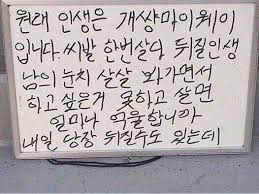 원래 인생은 개쌍마이웨이
입니다. 씨발 한번살다 뒤질인생
남의 눈치 살살 봐가면서
하고 싶은거 못하고 살면
얼마나 억울합니까
내일 당장 뒤질수도 있는데